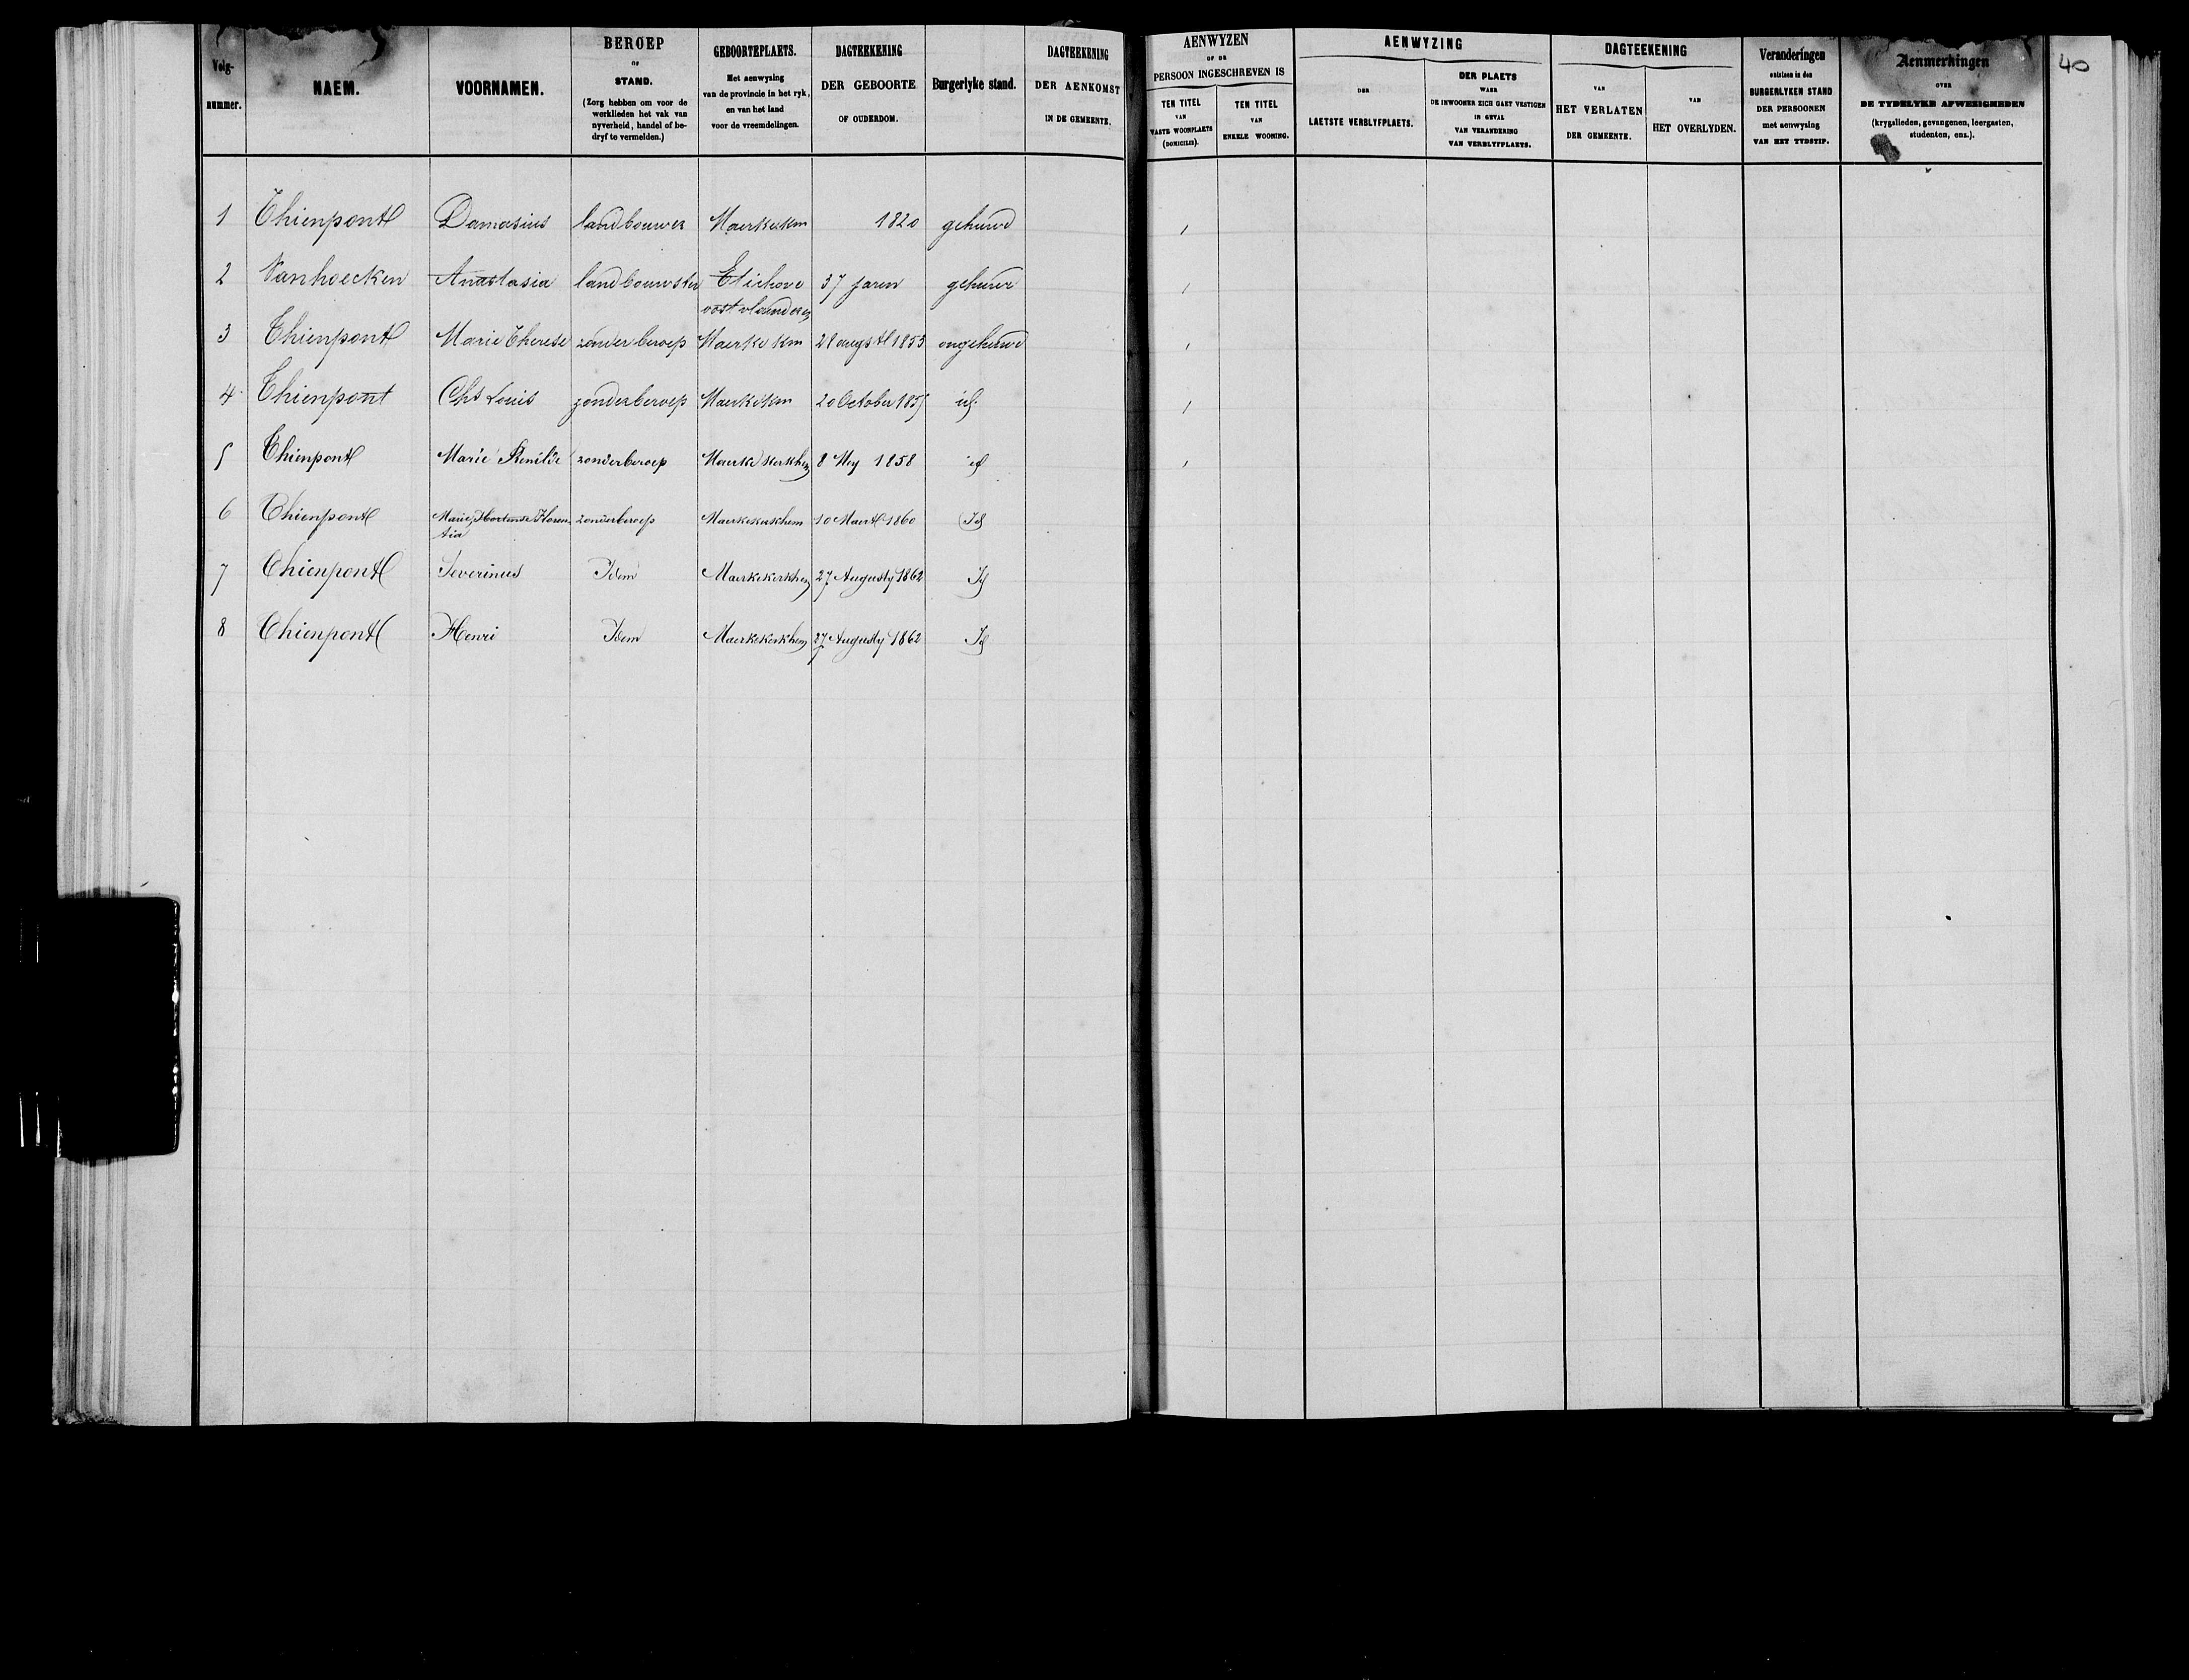 40
Volg-nummer. NAEM. VOORNAMEN. BEROEP OF STAND. (Zorg hebben om voor de werklieden het vak van nyverheid, handel of bedryf te vermelden.) GEBOORTEPLAETS. Met aenwyzing van de provincie in het ryk, en van het land voor de vreemdelingen. DAGTEEKENING DER GEBOORTE OF OUDERDOM. Burgerlyke stand. DAGTEEKENING DER AENKOMST IN DE GEMEENTE.
AENWYZEN OF DE PERSOON INGESCHREVEN IS TEN TITEL VAN VASTE WOONPLAETS (DOMICILIE). TEN TITEL VAN ENKELE WOONING. AENWYZING DER LAETSTE VERBLYFPLAETS. DER PLAETS WAER DE INWOONER ZICH GAET VESTIGEN IN GEVAL VAN VERANDERING VAN VERBLYFPLAETS. DAGTEEKENING VAN HET VERLATEN DER GEMEENTE. VAN HET OVERLYDEN. Veranderingen ontstaen in den BURGERLYKEN STAND DER PERSOONEN met aenwyzing VAN HET TYDSTIP. Aenmerkingen OVER DE TYDELYKE AFWEZIGHEDEN (krygslieden, gevangenen, leergasten, studenten, enz.).
1 Thienpont Damasius landbouwer Maerkekm 1820 gehuwd 1
2 Vanhoecken Anastasia landbouwster Etichove 37 jaren gehuwd 1
oost vlanderen
3 Thienpont Marie Therese zonder beroep Maerke km 28 augst 1853 ongehuwd 1
4 Thienpont Chs Louis zonderberoep Maerkekm 20 October 1855 id. 1
5 Thienpont Marie Renilde zonderberoep Maerkekerkhem 8 Mey 1858 id 1
6 Thienpont Marie Hortense Floren zonderberoep Maerkekerkhem 10 Maert 1860 Id
tia
7 Thienpont Severinus Idem Maerkekerkhem 27 Augusty 1862 Id
8 Thienpont Henri Idem Maerkekerkhem 27 Augusty 1862 Id